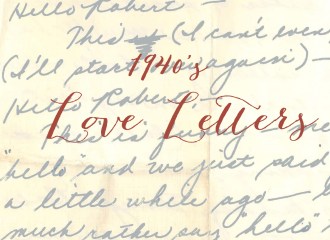 Hello Robert —
This is (I can't even
(I'll start again) —
1940's
Hello Robert —
Love Letters
This is
"hello" and we just said
a little while ago —
much rather say "hello"